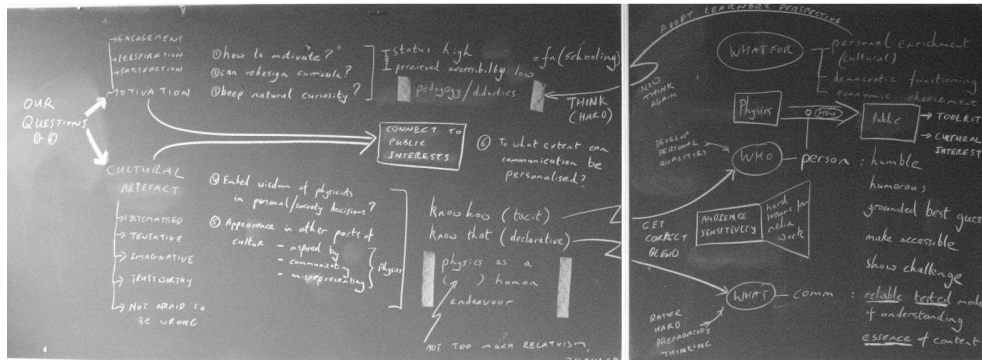 OUR
QUESTIONS
→ENGAGEMENT
→PERSPIRATION
→SATISFACTION
MOTIVATION
① how to motivate?
② can redesign curricula?
③ keep natural curiosity?
status high
percieved accessibilty low
= fn (schooling)
pedagogy/didactics
THINK
(HARD)
CONNECT TO
PUBLIC
INTERESTS
⑥ To what extent can
communication be
personalised?
CULTURAL
ARTEFACT
→SYSTEMATISED
→TENTATIVE
→IMAGINATIVE
→TRUSTWORTHY
→NOT AFRAID TO
BE WRONG
④ Embed wisdom of physicists
in personal/society decisions?
⑤ Appearance in other parts of
culture - inspired by
- communicating
- misrepresenting
physics
know how (tacit)
know that (declarative)
physics as a
( ) human
endeavour
NOT TOO MUCH RELATIVISM,
ADOPT LEARNERS PERSPECTIVE
NOW
THINK
AGAIN
WHAT FOR
personal enrichment
(cultural)
- democratic functioning
economic
Physics
HOW
Public
→ TOOLKIT
→ CULTURAL
INTEREST
DEVELOP
PERSONAL
QUALITIES
WHO
person : humble
humorous
grounded best
make accessible
show challenge
GET
CORRECT
BLEND
AUDIENCE
SENSITIVITY
hard
lessons for
media
work
WHAT
comm : reliable tested
of understanding
essence of content
RATHER
HARD
PREPARATORY
THINKING